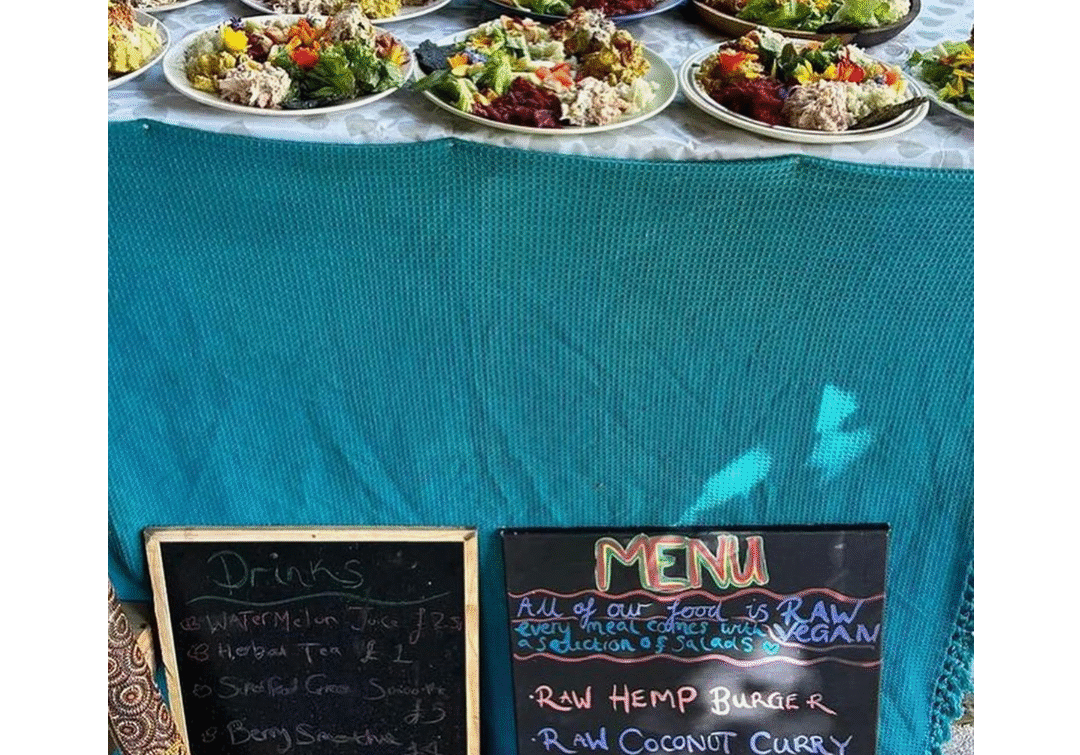 Drinks
WATERMelon Juice £2.5
Herbal Tea £1
Superfood Green Smoothie
£5
Berry Smoothie £4
MENU
All of our food is RAW
every meal comes with VEGAN
a selection of salads
·RAW HEMP BURGER
·RAW COCONUT CURRY